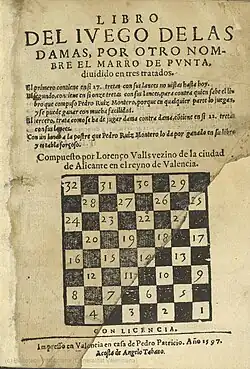 LIBRO
DEL IVEGO DE LAS
DAMAS, POR OTRO NOM-
BRE EL MARRO DE PVNTA,
diuidido en tres tratados.
El primero contiene en si 27. tretas con sus lances no vistas hasta hoy.
El segundo, contiene en si
tretas con sus lances, para contra quien sabe el li-
bro que compuso Pedro Ruiz Montero, porque en qualquier parte lo juegan,
y se puede ganar con mucha facilidad.
El tercero, trata como se ha de jugar dama contra dama, contiene en si 22. tretas
con sus lances.
Con un lance a la postre que Pedro Ruiz Montero lo da por ganado en su libro
y es tabla forçoso.
Compuesto por Lorenço Valls vezino de la ciudad
de Alicante en el reyno de Valencia.
32 31 30 29
28 27 26 25
24 23 22 21
20 19 18 17
16 15 14 13
12 11 10 9
8 7 6 5
4 3 2 1
CON LICENCIA.
Impresso en Valencia en casa de Pedro Patricio. Año 1597.
Acosta de Angelo Tabano.